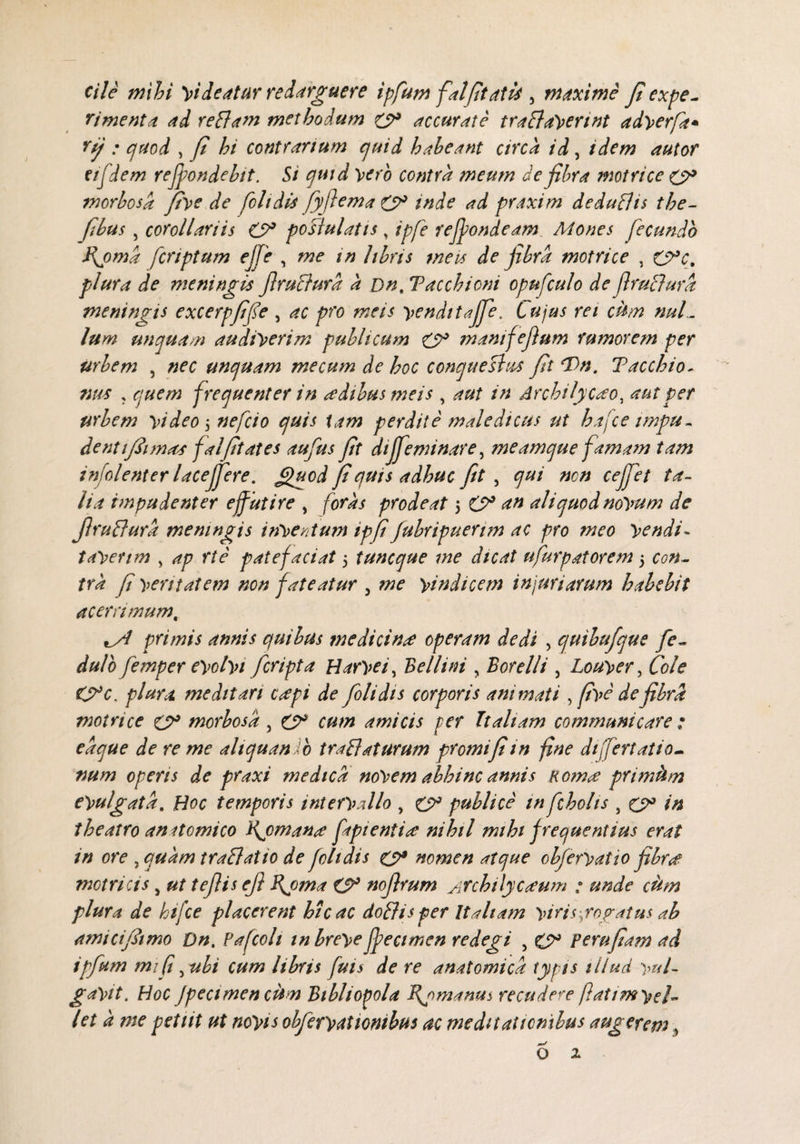 cilè mihi videatur redarguere ipsum falsitatis, maximè si expe-
rimenta ad rectam methodum & accuratè tractaverint adversa-
rij : quod, si hi contrarium quid habeant circà id, idem autor
eisdem respondebit. Si quid verò contrà meum de fibra motrice &
morbosâ sive de solidis systema & inde ad praxim deductis the-
sibus, corollariis & postulatis, ipse respondeam. Mones secundò
Româ scriptum esse, me in libris meis de fibrâ motrice, &c.
plura de meningis structurâ à Dn. Pacchioni opusculo de structurâ
meningis excerpsisse, ac pro meis venditasse. Cujus rei cùm nul-
lum unquam audiverim publicum & manifestum rumorem per
urbem, nec unquam mecum de hoc conquestus sit Dn. Pacchio-
nus, quem frequenter in ædibus meis, aut in Archilycæo, aut per
urbem video; nescio quis tam perditè maledicus ut hasce impu-
dentissimas falsitates ausus sit disseminare, meamque famam tam
insolenter lacessere. Quod si quis adhuc sit, qui non cesset ta-
lia impudenter effutire, foràs prodeat; & an aliquod novum de
structurâ meningis inventum ipsi subripuerim ac pro meo vendi-
taverim, ap rtè patefaciat; tuncque me dicat usurpatorem; con-
trà si veritatem non fateatur, me vindicem injuriarum habebit
acerrimum.
A primis annis quibus medicinæ operam dedi, quibusque se-
dulò semper evolvi scripta Harvei, Bellini, Borelli, Louver, Cole
&c. plura meditari cæpi de solidis corporis animati, sivè de fibrâ
motrice & morbosâ, & cum amicis per Italiam communicare :
eâque de re me aliquandò tractaturum promisi in fine dissertatio-
num operis de praxi medicâ novem abhinc annis Romæ primùm
evulgatâ. Hoc temporis intervallo, & publicè in scholis, & in
theatro anatomico Romanæ sapientiæ nihil mihi frequentius erat
in ore, quàm tractatio de solidis & nomen atque observatio fibræ
motricis, ut testis est Roma & nostrum Archilycæum : unde cùm
plura de hisce placerent hîc ac doctis per Italiam viris, rogatus ab
amicissimo Dn. Pascoli in breve specimen redegi, & Perusiam ad
ipsum misi, ubi cum libris suis de re anatomicâ typis illud vul-
gavit. Hoc specimen cùm Bibliopola Romanus recudere statim vel-
let à me petiit ut novis observationibus ac meditationibus augerem,
õ 2